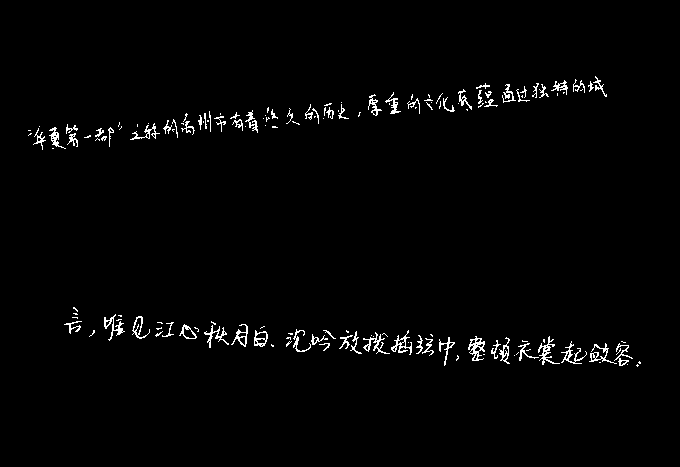 “华夏第一都”之称的禹州市有着悠久的历史,厚重的文化底蕴通过独特的城
言,唯见江心秋月白、沉吟放拨插弦中,整顿衣裳起敛容。